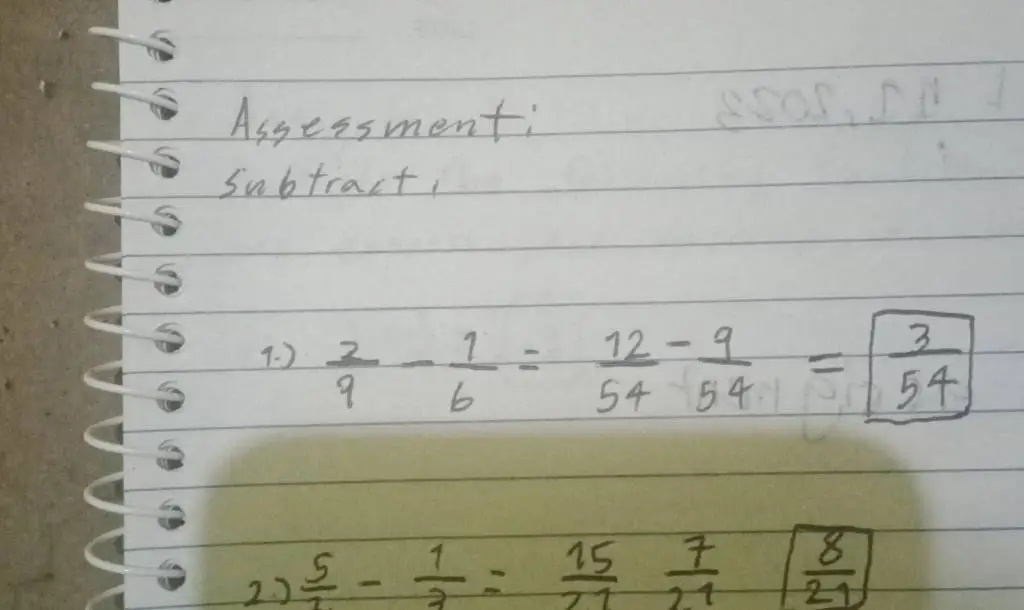 Assessment:
Subtract.
1.) 2/9 - 1/6 = 12/54 - 9/54 = 3/54
2.) 5/ - 1/3 = 15/21 7/21 8/21